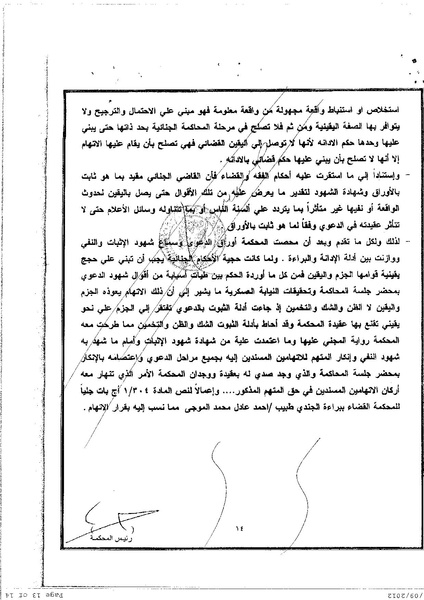 استخلاص او استنباط واقعة مجهولة من واقعة معلومة فهو مبني علي الاحتمال والترجيح ولا
يتوافر بها الصفة اليقينية ومن ثم فلا تصلح في مرحلة المحاكمة الجنائية بحد ذاتها حتى يبني
عليها وحدها حكم الادانه لأنها لا توصل إلي اليقين القضائي فهي تصلح بأن يقام عليها الاتهام
إلا أنها لا تصلح بأن يبني عليها حكم قضائي بالادانه .
- وإستناداً إلي ما استقرت عليه أحكام الفقه والقضاء فأن القاضي الجنائي مقيد بما هو ثابت
بالأوراق وشهادة الشهود لتقدير ما يعرض عليه من تلك الأقوال حتى يصل باليقين لحدوث
الواقعة أو نفيها غير متأثراً بما يتردد علي ألسنة الناس أو بما تتناوله وسائل الأعلام حتى لا
تتأثر عقيدته في الدعوي وفقاً لما هو ثابت بالأوراق
- لذلك ولكل ما تقدم وبعد أن محصت المحكمة أوراق الدعوي وسماع شهود الإثبات والنفي
ووازنت بين أدلة الإدانة والبراءة . ولما كانت حجية الأحكام الجنائية يجب أن تبني علي حجج
يقينية قوامها الجزم واليقين فمن كل ما أوردة الحكم بين طيات أسبابة من أقوال شهود الدعوي
بمحضر جلسة المحاكمة وتحقيقات النيابة العسكرية ما يشير إلي أن ذلك الاتهام يعوذه الجزم
واليقين لا الظن والشك والتخمين إذ جاءت أدلة الثبوت بالدعوي تفتقر إلي الجزم علي نحو
يقيني تقنع بها عقيدة المحكمة وقد أحاط بأدلة الثبوت الشك والظن والتخمين مما طرحت معه
المحكمة رواية المجني عليها وما اعتمدت علية من شهادة شهود الإثبات وأمام ما شهد به
شهود النفي وإنكار المتهم للاتهامين المسندين إليه بجميع مراحل الدعوي وإعتصامه بالإنكار
بمحضر جلسة المحاكمة والذي وجد صدي له بعقيدة ووجدان المحكمة الأمر الذي تنهار معه
أركان الاتهامين المسندين في حق المتهم المذكور.... وإعمالاً لنص المادة ١/٣٠٤ أ.ج بات جلياً
للمحكمة القضاء ببراءة الجندي طبيب /احمد عادل محمد الموجى مما نسب إليه بقرار الاتهام .
١٤
( )
رئيس المحكمة
Page 13 of 14
/09/2012